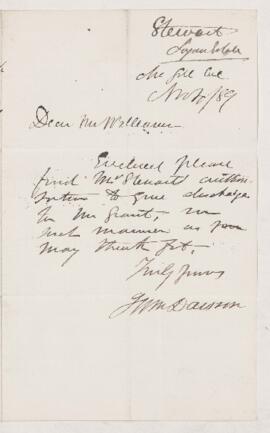 Stewart
McGill Col
Nov /89
Dear Mr Williamson
Enclosed please
find Mr Stewart's author-
isation to give discharge
to Mr Grant in
such manner as you
may think fit.
Truly yours
JWm Dawson